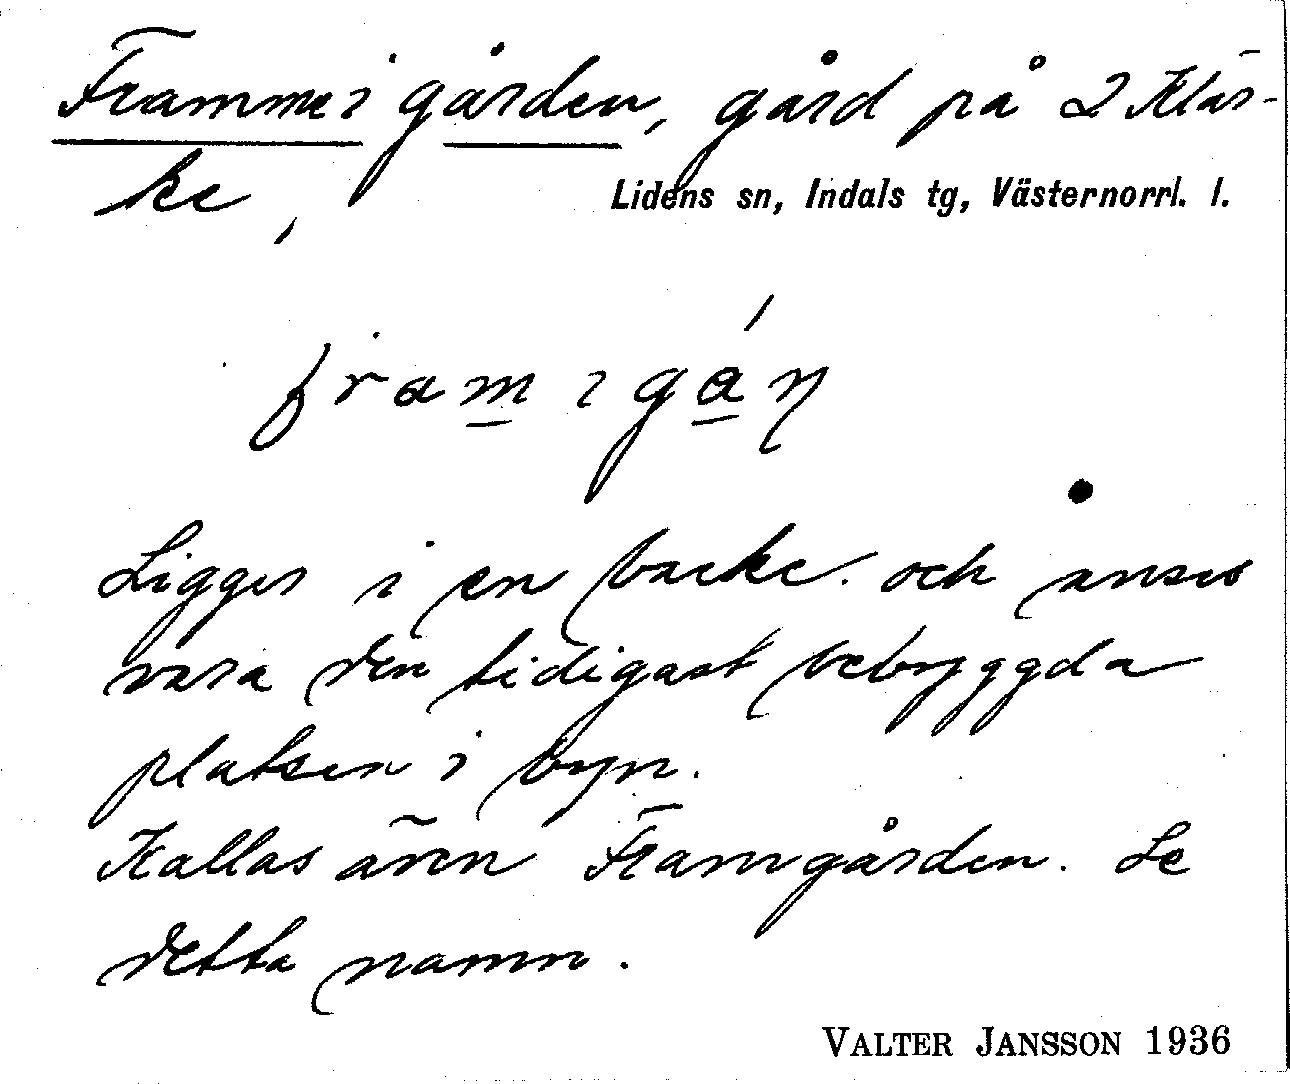 Frammeigården, gård på 2 Klär-
ke,
Lidens sn, Indals tg, Västernorrl. l.
framigán
Ligger i en backe och anses
vara den tidigast bebyggda
platsen i byn.
Kallas även Framgården. Se
detta namn.
VALTER JANSSON 1936